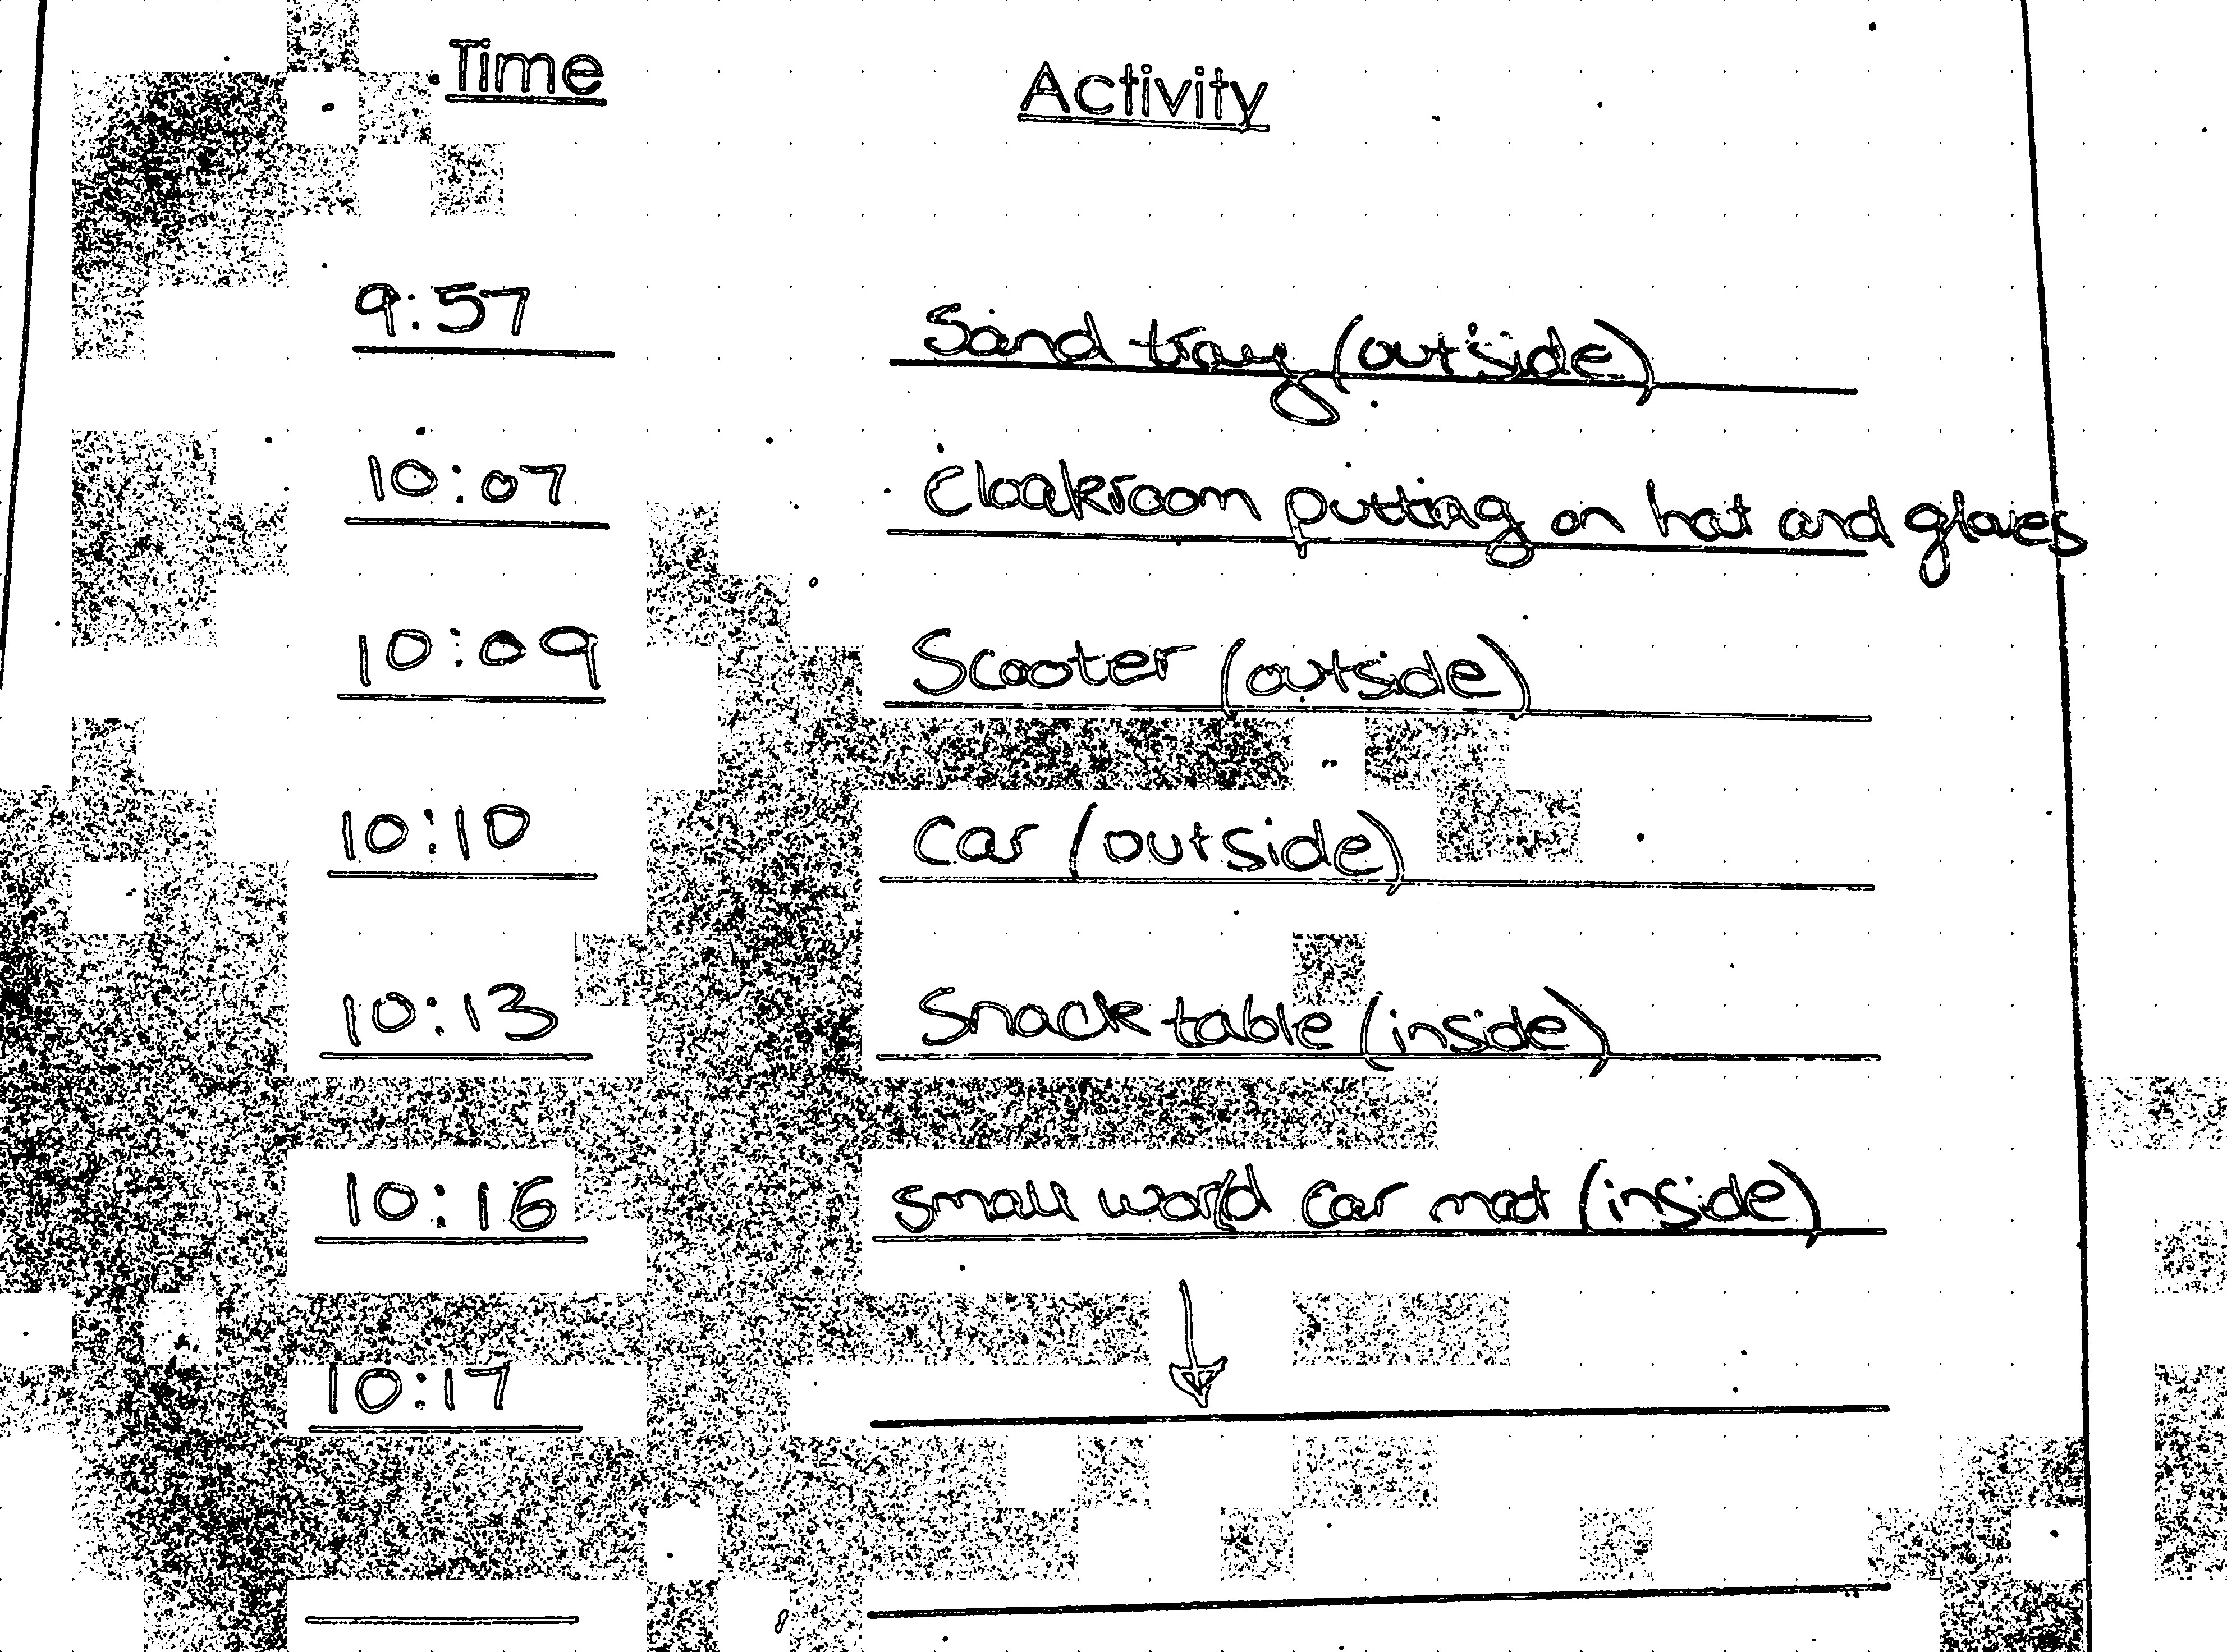 Time Activity
9:57 Sand tray (outside)
10:07 Cloakroom putting on hat and gloves
10:09 Scooter (outside)
10:10 Car (outside)
10:13 Snack table (inside)
10:16 small world car mat (inside)
10:17 ↓